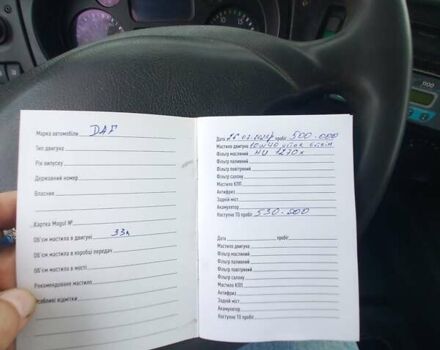 Марка автомобіля DAF
Тип двигуна
Рік випуску
Державний номер
Власник
Картка Mogul №
Об'єм мастила в двигуні 33л
Об'єм мастила в коробці передач
Об'єм мастила в мості
Рекомендоване мастило
Особливі відмітки
Дата 26.07. пробіг 500-000
Мастило двигуна 10w40
Фільтр масляний HU 1270 x
Фільтр паливний
Фільтр повітряний
Фільтр салону
Мастило КПП
Антифриз
Задній міст
Акумулятор
Наступне ТО пробіг 530-000
Дата пробіг
Мастило двигуна
Фільтр масляний
Фільтр паливний
Фільтр повітряний
Фільтр салону
Мастило КПП
Антифриз
Задній міст
Акумулятор
Наступне ТО пробіг